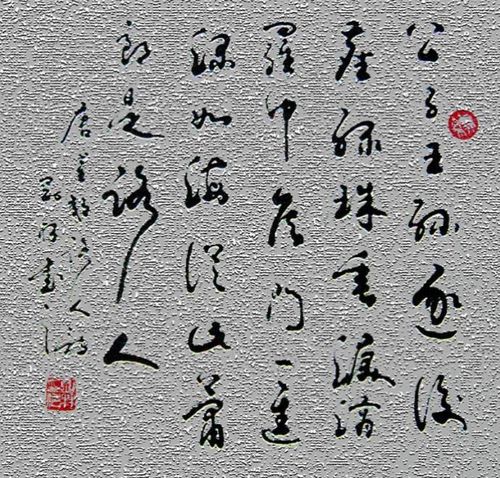 公子王孫逐後
塵綠珠垂淚滴
羅巾侯門一進
深如海從此蕭
郎是路人
唐崔郊路人詩
書